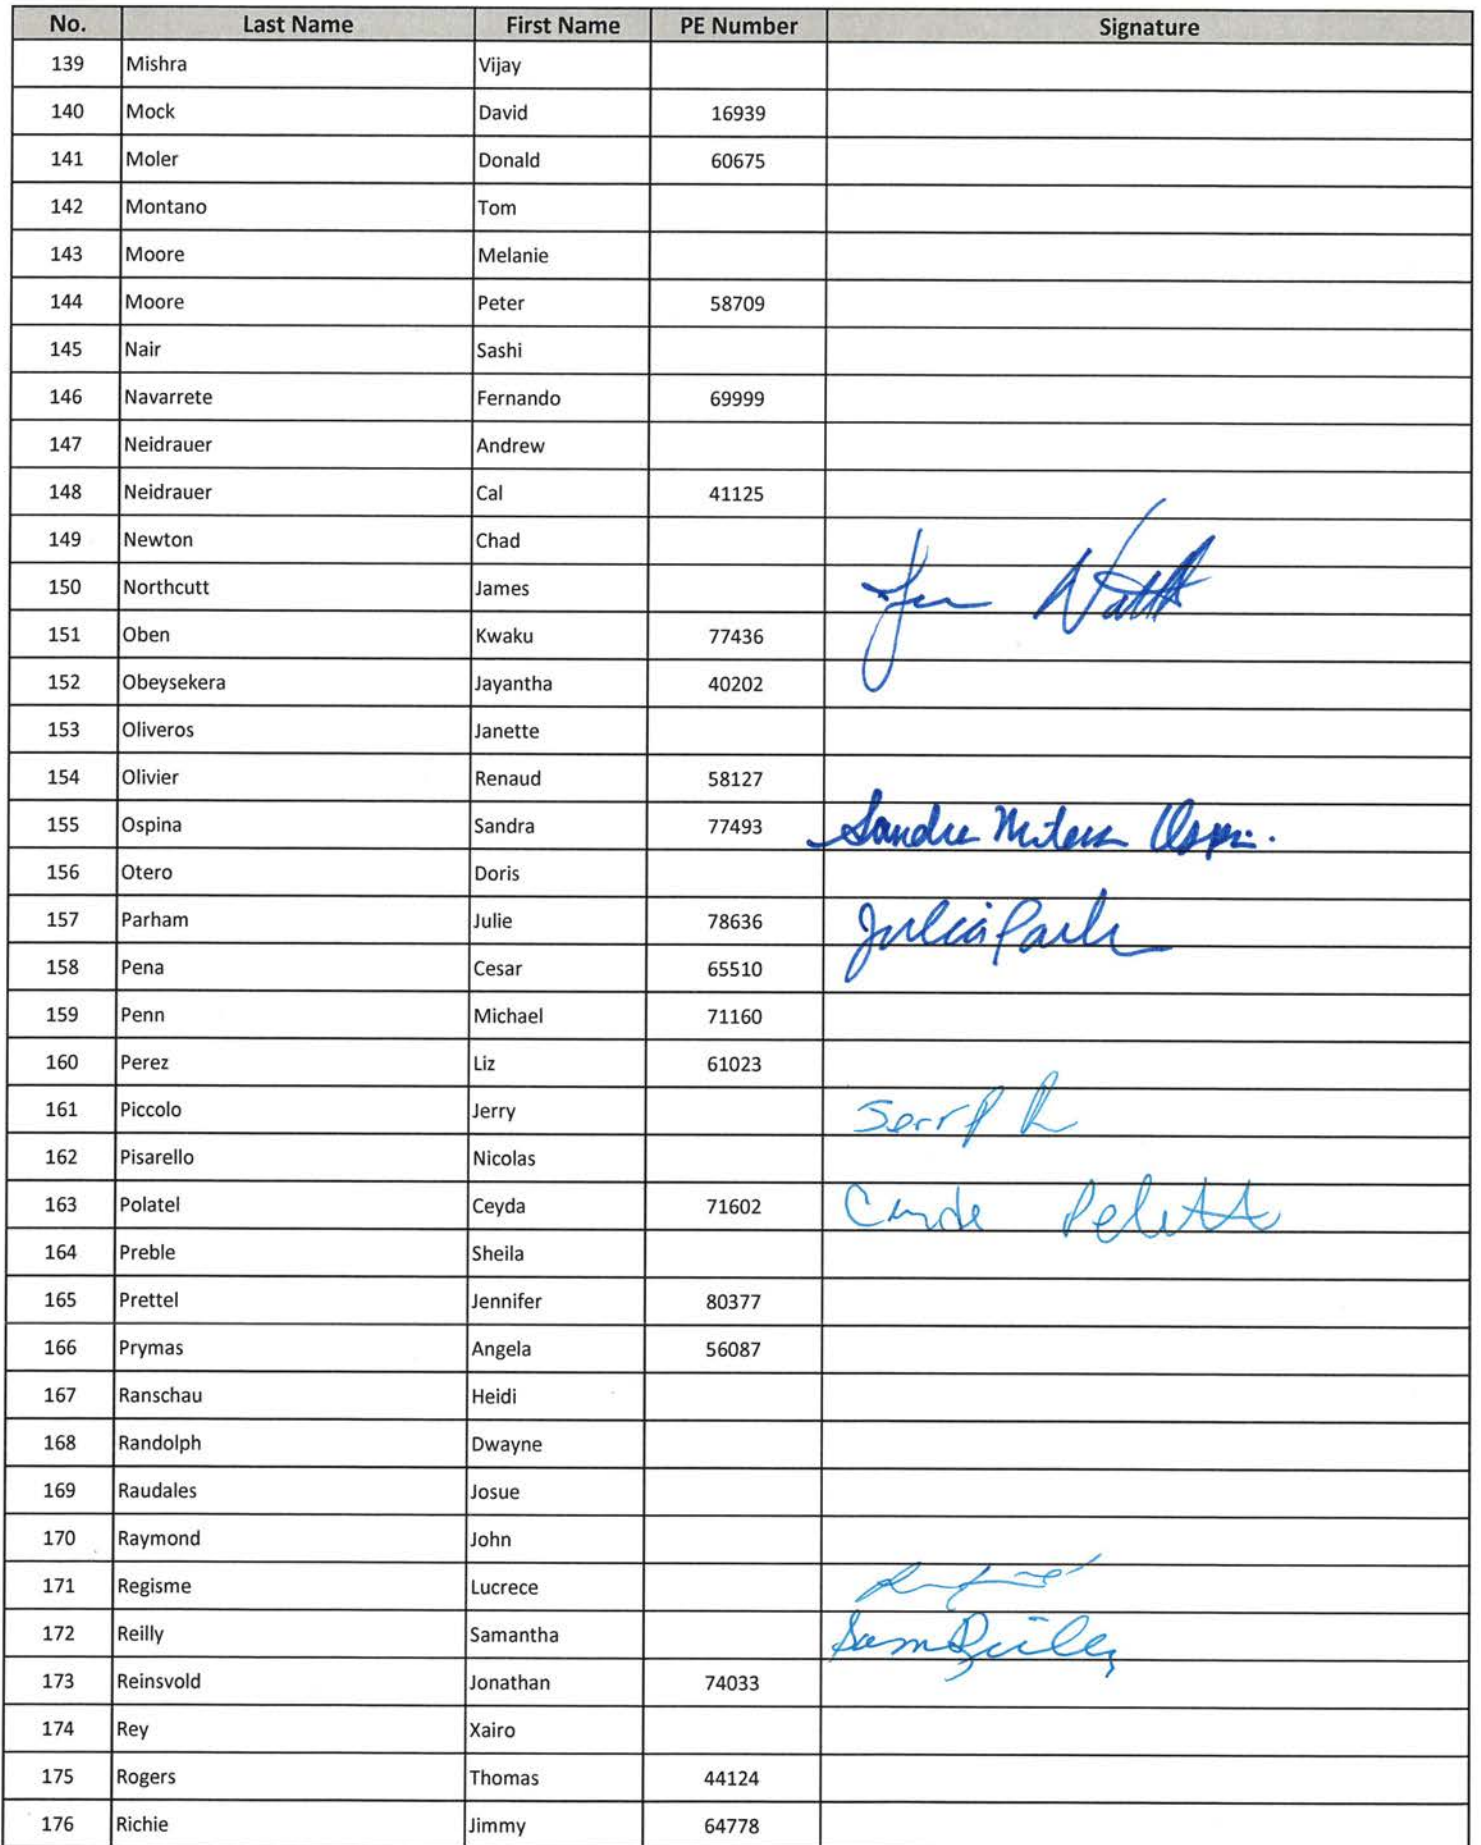 No. Last Name First Name PE Number Signature
139 Mishra Vijay
140 Mock David 16939
141 Moler Donald 60675
142 Montano Tom
143 Moore Melanie
144 Moore Peter 58709
145 Nair Sashi
146 Navarrete Fernando 69999
147 Neidrauer Andrew
148 Neidrauer Cal 41125
149 Newton Chad
150 Northcutt James
151 Oben Kwaku 77436
152 Obeysekera Jayantha 40202
153 Oliveros Janette
154 Olivier Renaud 58127
155 Ospina Sandra 77493
156 Otero Doris
157 Parham Julie 78636
158 Pena Cesar 65510
159 Penn Michael 71160
160 Perez Liz 61023
161 Piccolo Jerry
162 Pisarello Nicolas
163 Polatel Ceyda 71602
164 Preble Sheila
165 Prettel Jennifer 80377
166 Prymas Angela 56087
167 Ranschau Heidi
168 Randolph Dwayne
169 Raudales Josue
170 Raymond John
171 Regisme Lucrece
172 Reilly Samantha Sam Reilly
173 Reinsvold Jonathan 74033
174 Rey Xairo
175 Rogers Thomas 44124
176 Richie Jimmy 64778